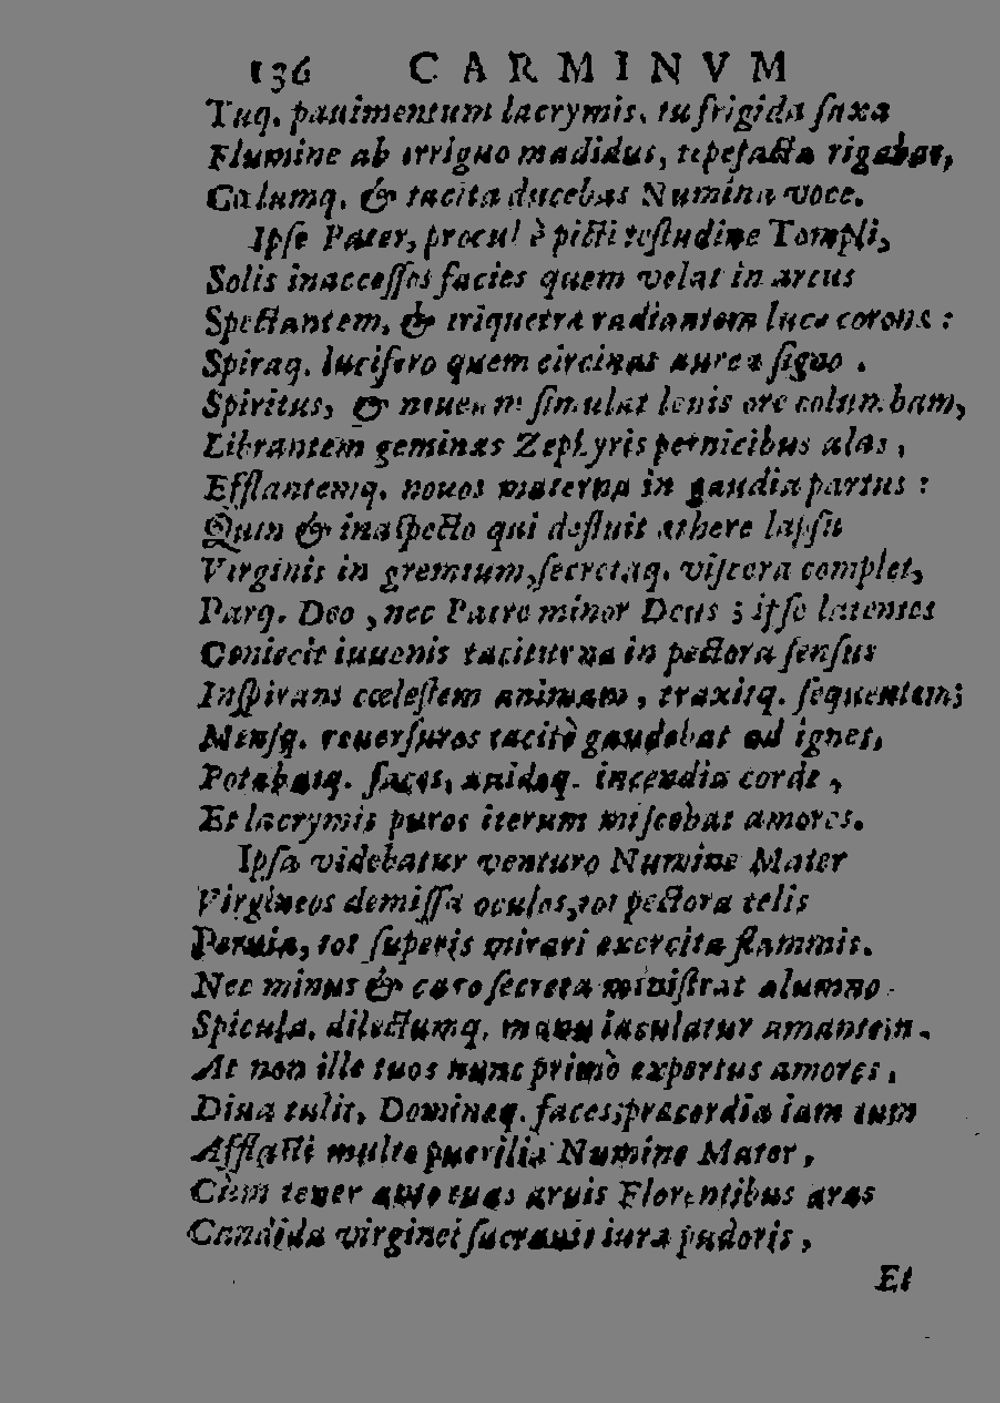 136 CARMINVM
Tuq. pauimentum lacrymis, tu frigida ſaxa
Flumine ab irriguo madidus, tepefacta rigabas,
Cælumq. & tacita ducebas Numina voce.
Ipſe Pater, procul è picti teſtudine Templi,
Solis inacceſſos facies quem velat in arcus
Spectantem, & triquetra radiantem luce corona:
Spiraq. lucifero quem circinat aurea ſigno.
Spiritus, & niueam ſimulat lenis ore columbam,
Librantem geminas Zephyris pernicibus alas,
Efflantemq. nouos materna in gaudia partus:
Quin & inaſpecto qui defluit æthere lapſu
Virginis in gremium, ſecretaq. viſcera complet,
Parq. Deo, nec Patre minor Deus; ipſe latentes
Coniecit iuuenis taciturna in pectora ſenſus
Inſpirans cœleſtem animam, traxitq. ſequentem;
Menſq. reuerſuros tacitè gaudebat ad ignes,
Potabatq. faces, auidoq. incendia corde,
Et lacrymis puros iterum miſcebat amores.
Ipſa videbatur venturo Numine Mater
Virgineos demiſſa oculos, tot pectora telis
Peruia, tot ſuperis mirari exercita flammis.
Nec minus & caro ſecreta miniſtrat alumno
Spicula, dilectumq. manu iaculatur amantem.
At non ille tuos nunc primò expertus amores,
Diua tulit, Dominæq. faces; præcordia iam tum
Afflaſti multo puerilia Numine Mater,
Cùm tener ante tuas aruis Florentibus aras
Candida virginei ſacrauit iura pudoris,
Et